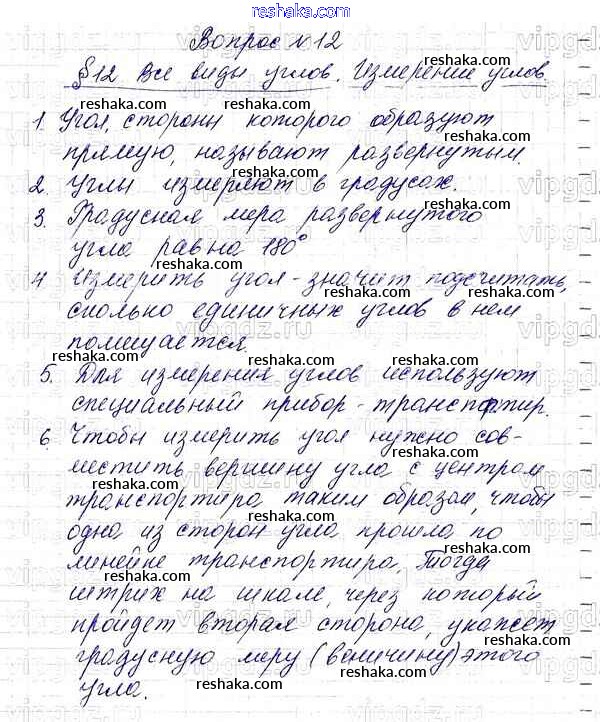 reshaka.com
Вопрос №12
§12 Все виды углов. Измерение углов.
1. Угол, стороны которого образуют
прямую, называют развернутым.
2. Углы измеряют в градусах.
3. Градусная мера развернутого
угла равна 180°
4 Измерить угол - значит подсчитать,
сколько единичных углов в нем
помещается.
5. Для измерения углов используют
специальный прибор - транспортир.
6. Чтобы измерить угол нужно сов-
местить вершину угла с центром
транспортира таким образом, чтобы
одна из сторон угла прошла по
линейке транспортира. Тогда
штрих на шкале, через который
пройдет вторая сторона, укажет
градусную меру (величину) этого
угла.